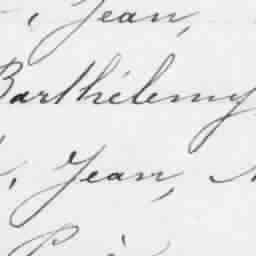 Jean,
Barthélemy
, Jean,